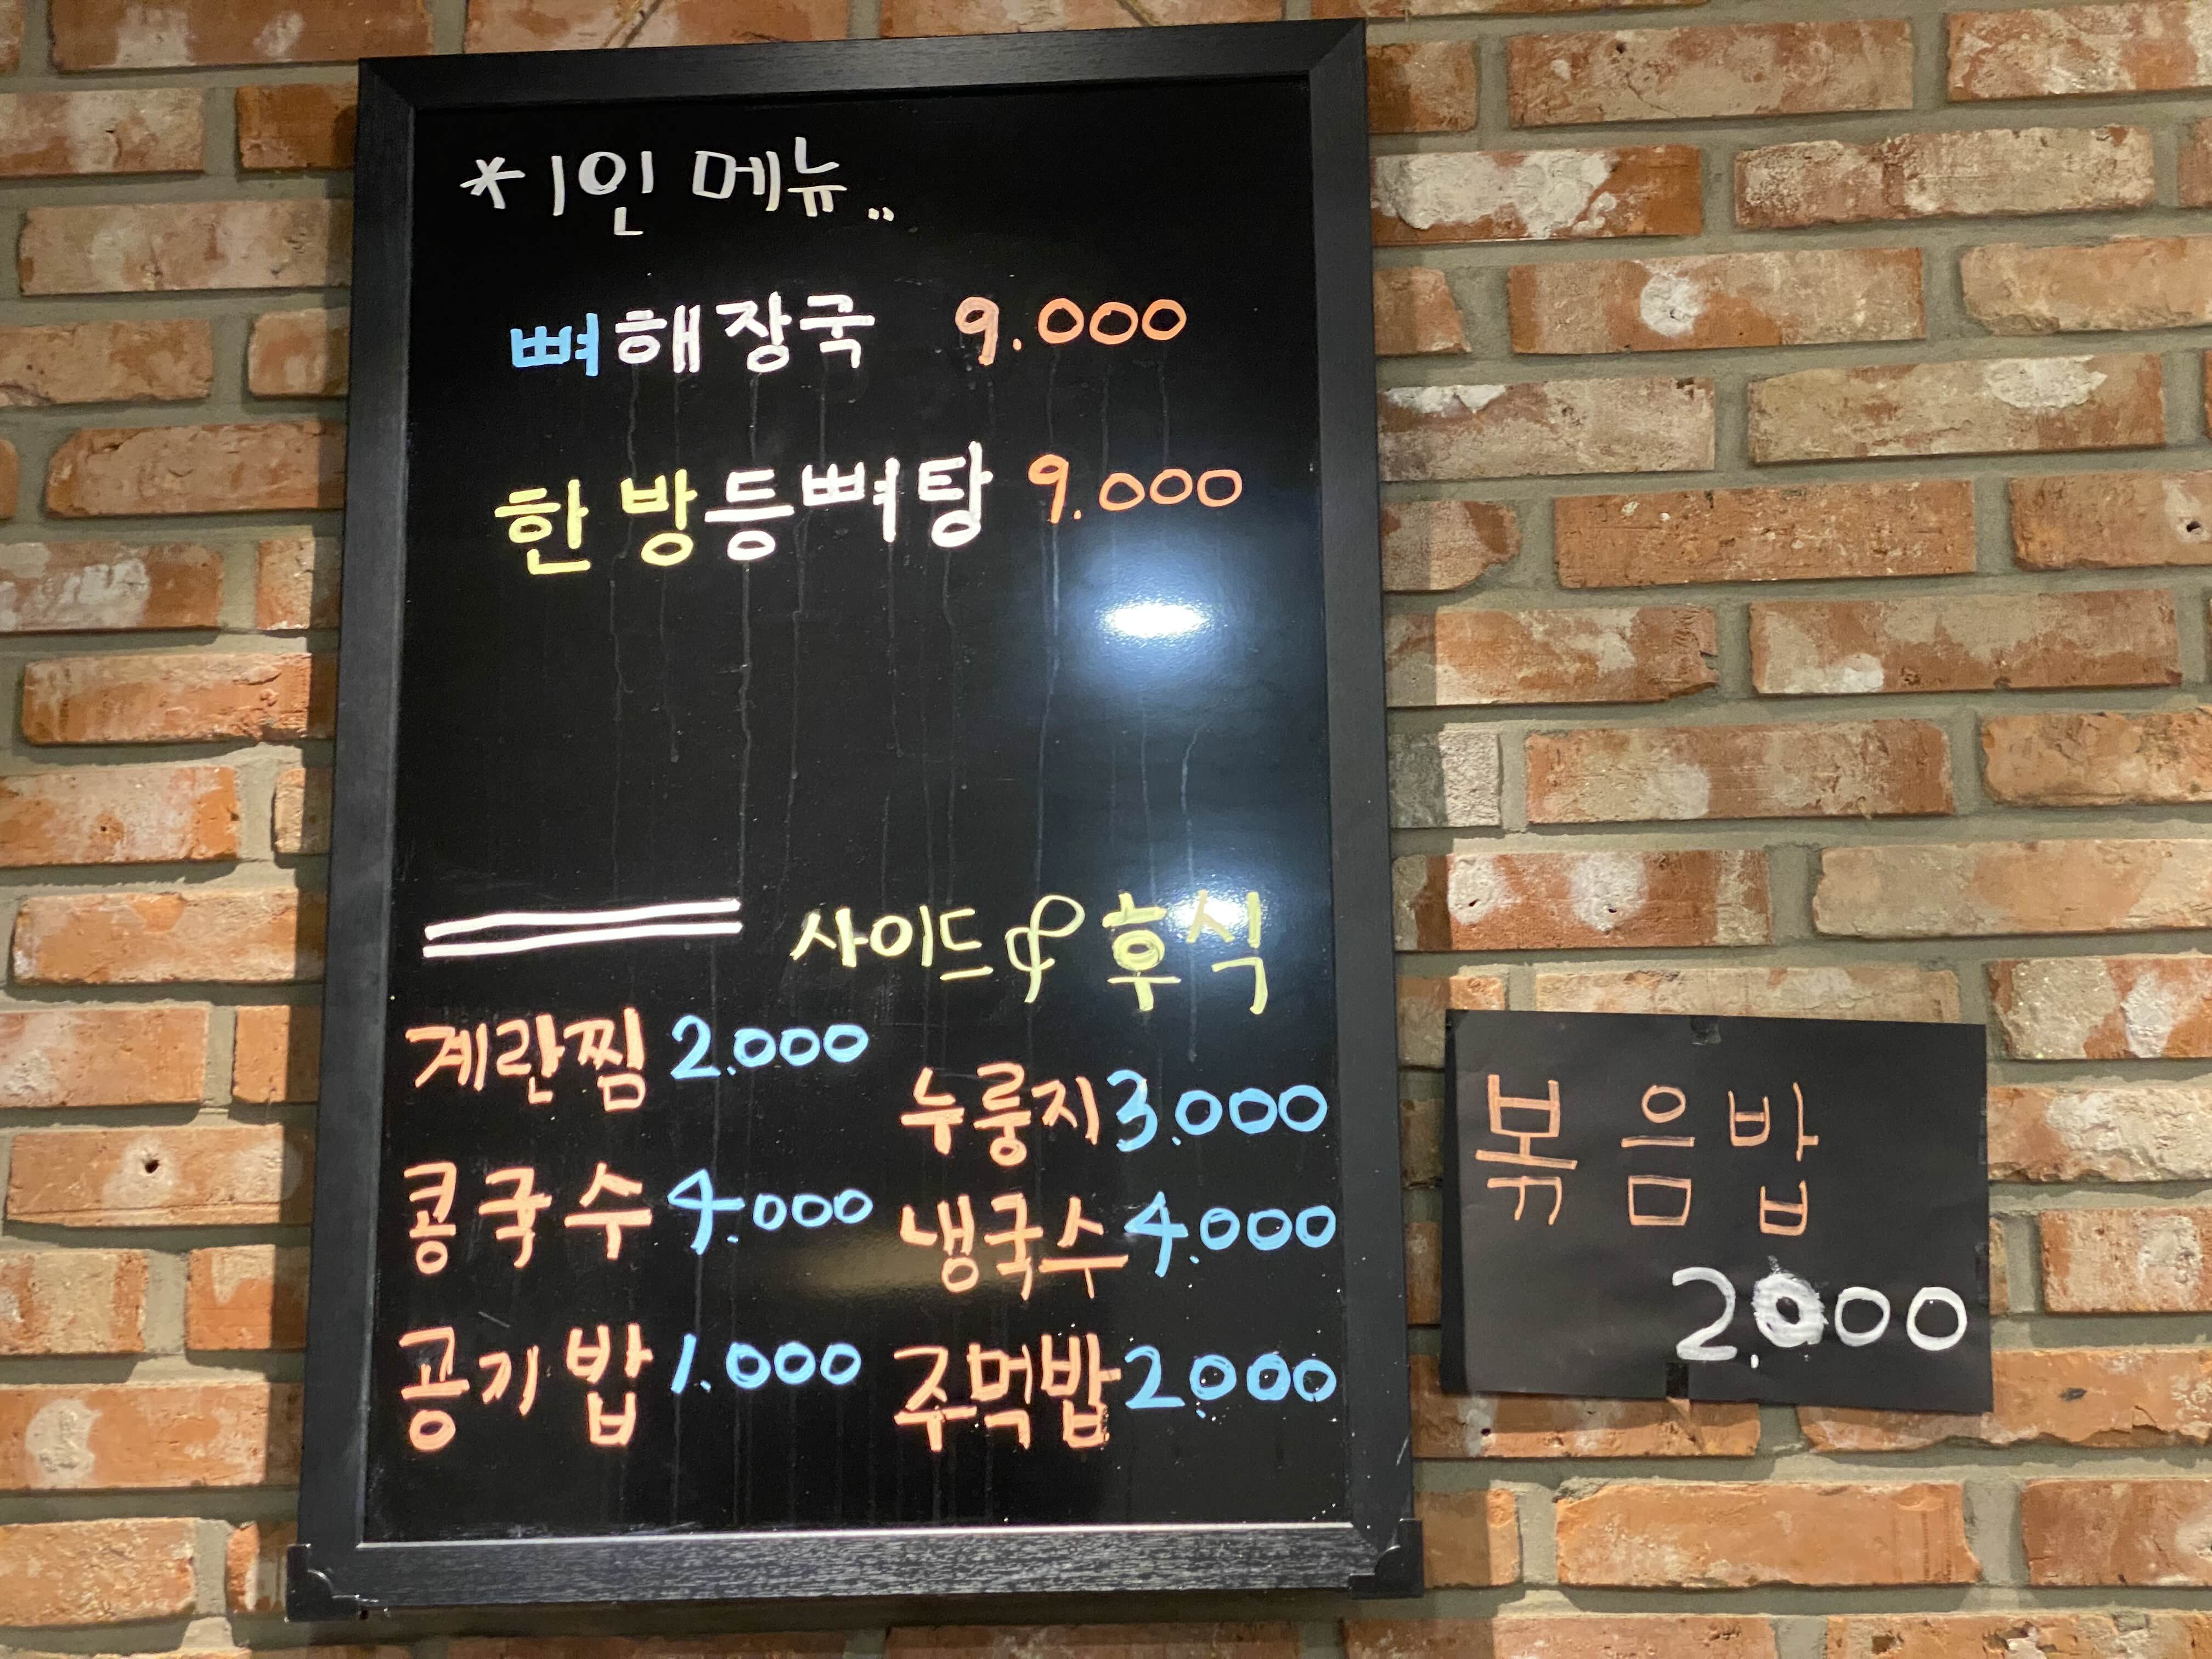 *1인 메뉴..
뼈해장국 9.000
한방등뼈탕 9.000
사이드 & 후식
계란찜 2.000
누룽지 3.000
콩국수 4.000
냉국수 4.000
공기밥 1.000
주먹밥 2.000
볶음밥
2.000